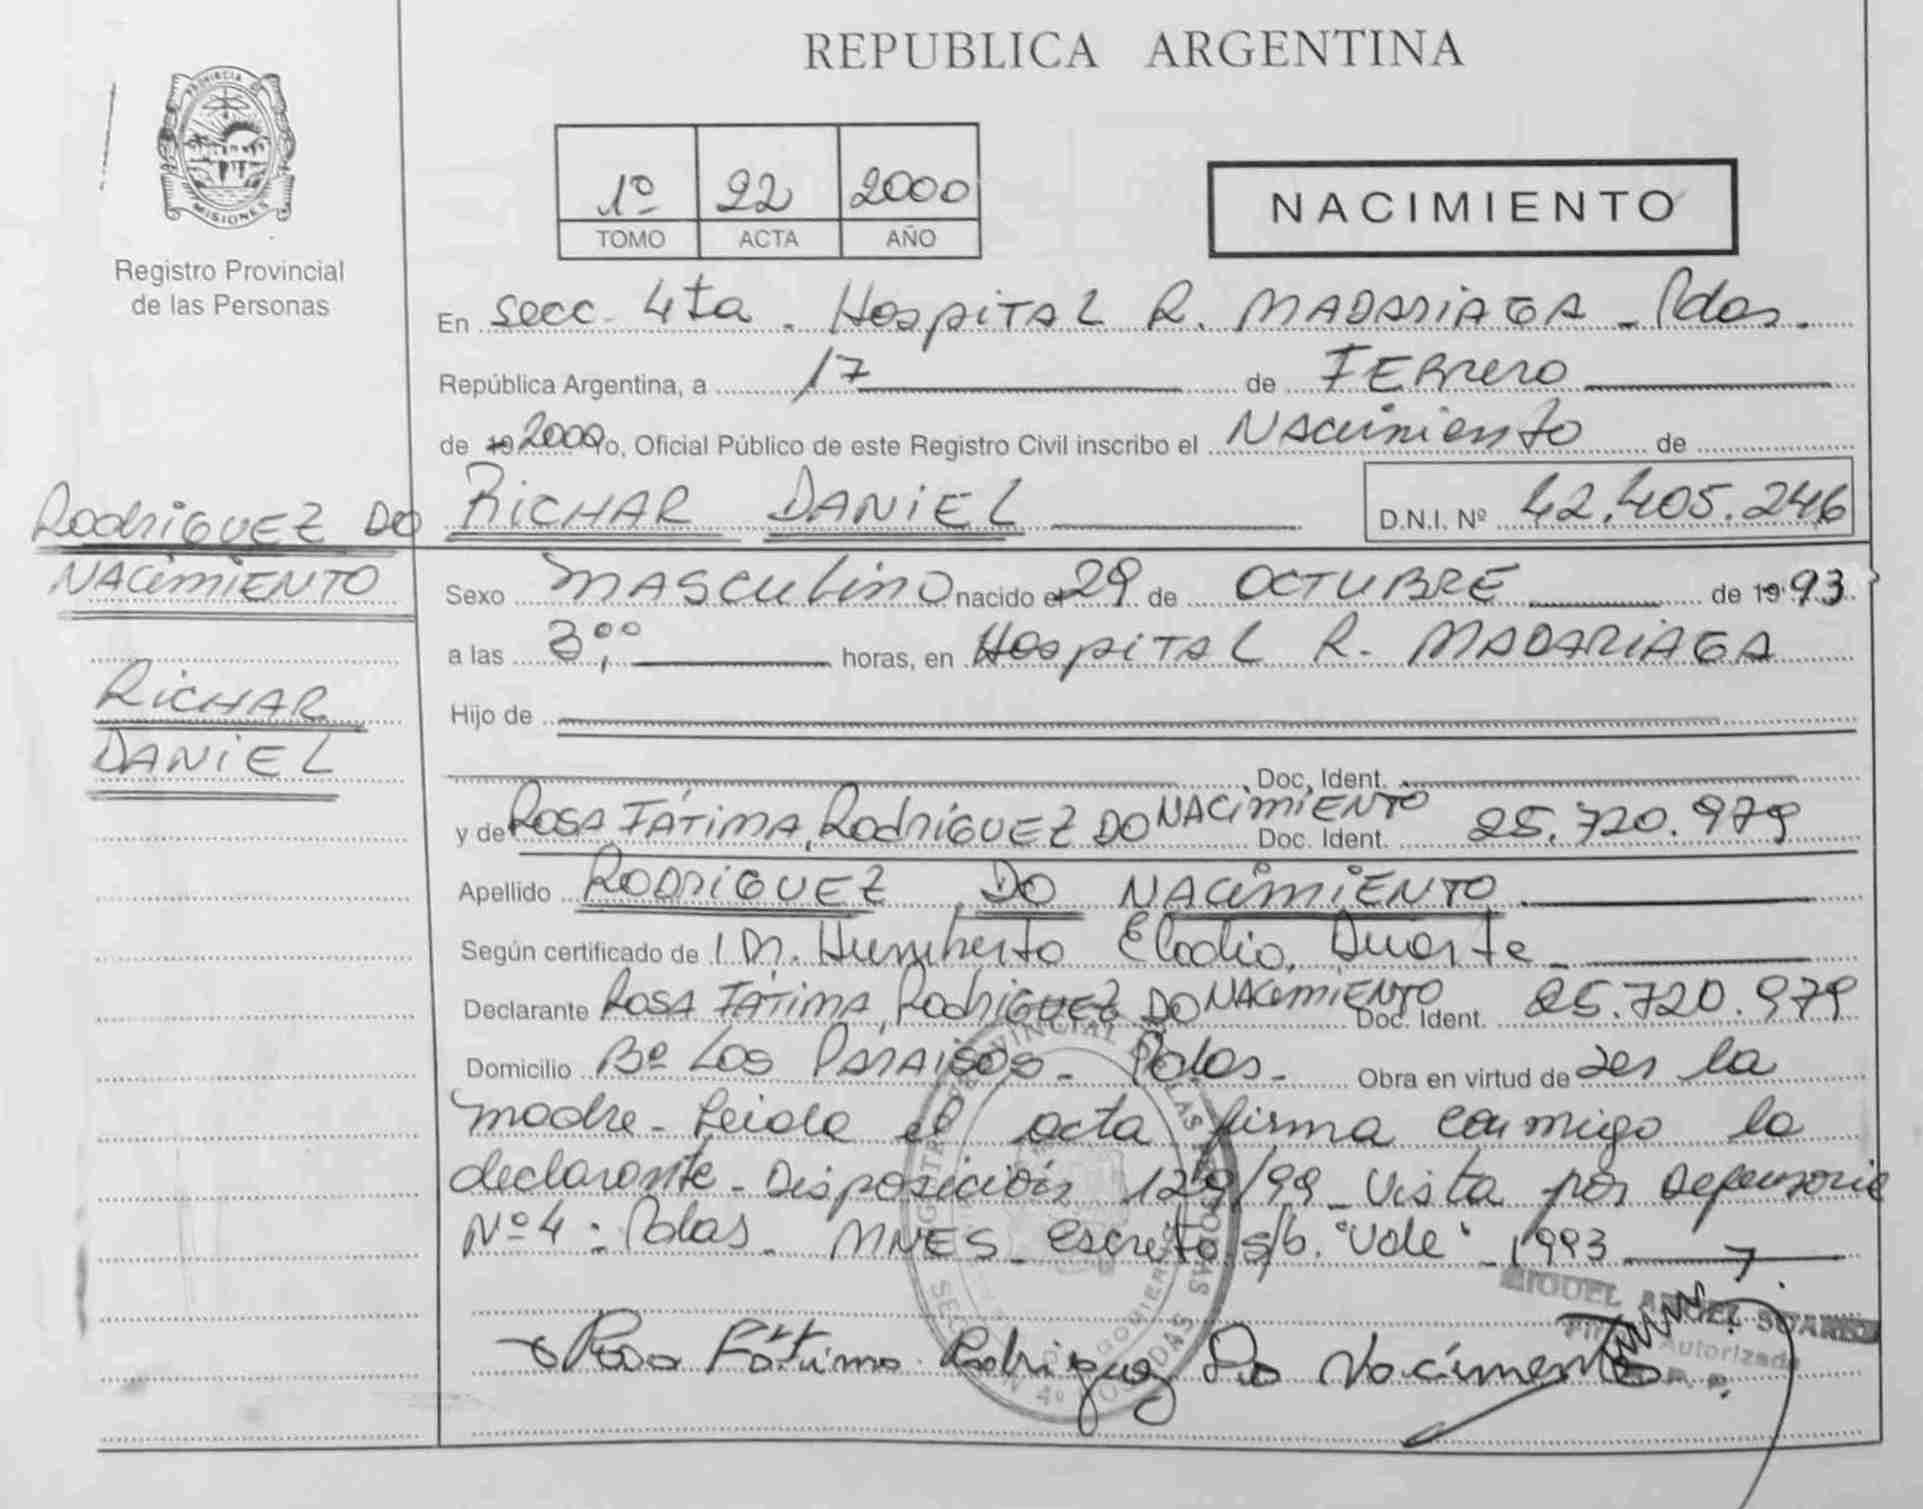 REPUBLICA ARGENTINA
PROVINCIA DE
MISIONES
Registro Provincial
de las Personas
1º 22 2000
TOMO ACTA AÑO
NACIMIENTO
En secc. 4ta. Hospital R. MADARIAGA - Pdas.
República Argentina, a 17 de FEBRERO
de 19 2000 yo, Oficial Público de este Registro Civil inscribo el Nacimiento de
RODRIGUEZ DO NACIMIENTO
RICHAR DANIEL
RICHAR DANIEL D.N.I. Nº 42.405.246
Sexo MASCULINO nacido el 29 de OCTUBRE de 1993
a las 3,00 horas, en Hospital R. MADARIAGA
Hijo de
Doc. Ident.
y de ROSA FÁTIMA, RODRIGUEZ DO NACIMIENTO Doc. Ident. 25.720.979
Apellido RODRIGUEZ DO NACIMIENTO
Según certificado de Dr. Humberto Eladio, Duarte
Declarante ROSA FÁTIMA, RODRIGUEZ DO NACIMIENTO Doc. Ident. 25.720.979
Domicilio Bº LOS PARAISOS - Pdas. Obra en virtud de ser la
madre - Leida el acta firma conmigo la
declarante - Disposición 129/99 - Vista por Defensoria
Nº 4 - Pdas. MNES - Escrito s/b. "Vale" - 1993
MIGUEL ANGEL SUAREZ
Autorizada
R. P. P.
Rosa Fátima Rodriguez Do Nacimento